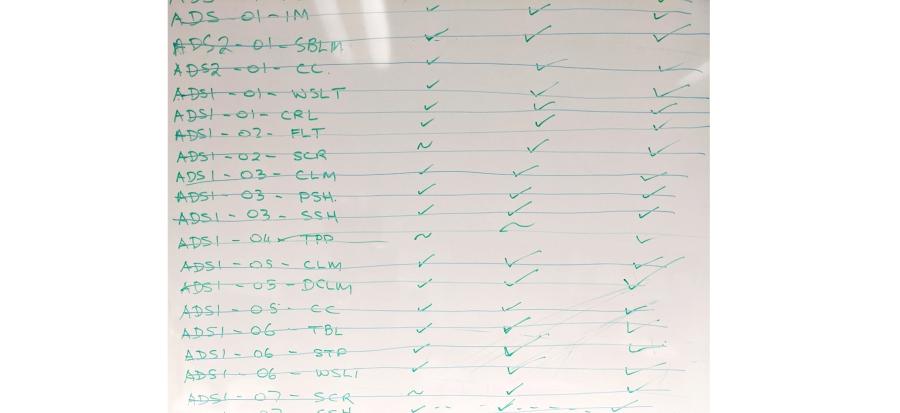 ADS - 01 - IM ✓ ✓ ✓
ADS2 - 01 - SBLM ✓ ✓ ✓
ADS2 - 01 - CC. ✓ ✓ ✓
ADS1 - 01 - WSLT ✓ ✓ ✓
ADS1 - 01 - CRL ✓ ✓ ✓
ADS1 - 02 - FLT ✓ ✓ ✓
ADS1 - 02 - SCR ~ ✓ ✓
ADS1 - 03 - CLM ✓ ✓ ✓
ADS1 - 03 - PSH. ✓ ✓ ✓
ADS1 - 03 - SSH ✓ ✓ ✓
ADS1 - 04 - TPP ~ ~ ✓
ADS1 - 05 - CLM ✓ ✓ ✓
ADS1 - 05 - DCLM ✓ ✓ ✓
ADS1 - 05 - CC ✓ ✓ ✓
ADS1 - 06 - TBL ✓ ✓ ✓
ADS1 - 06 - STP ✓ ✓ ✓
ADS1 - 06 - WSL1 ✓ ✓ ✓
ADS1 - 07 - SCR ~ ✓ ✓